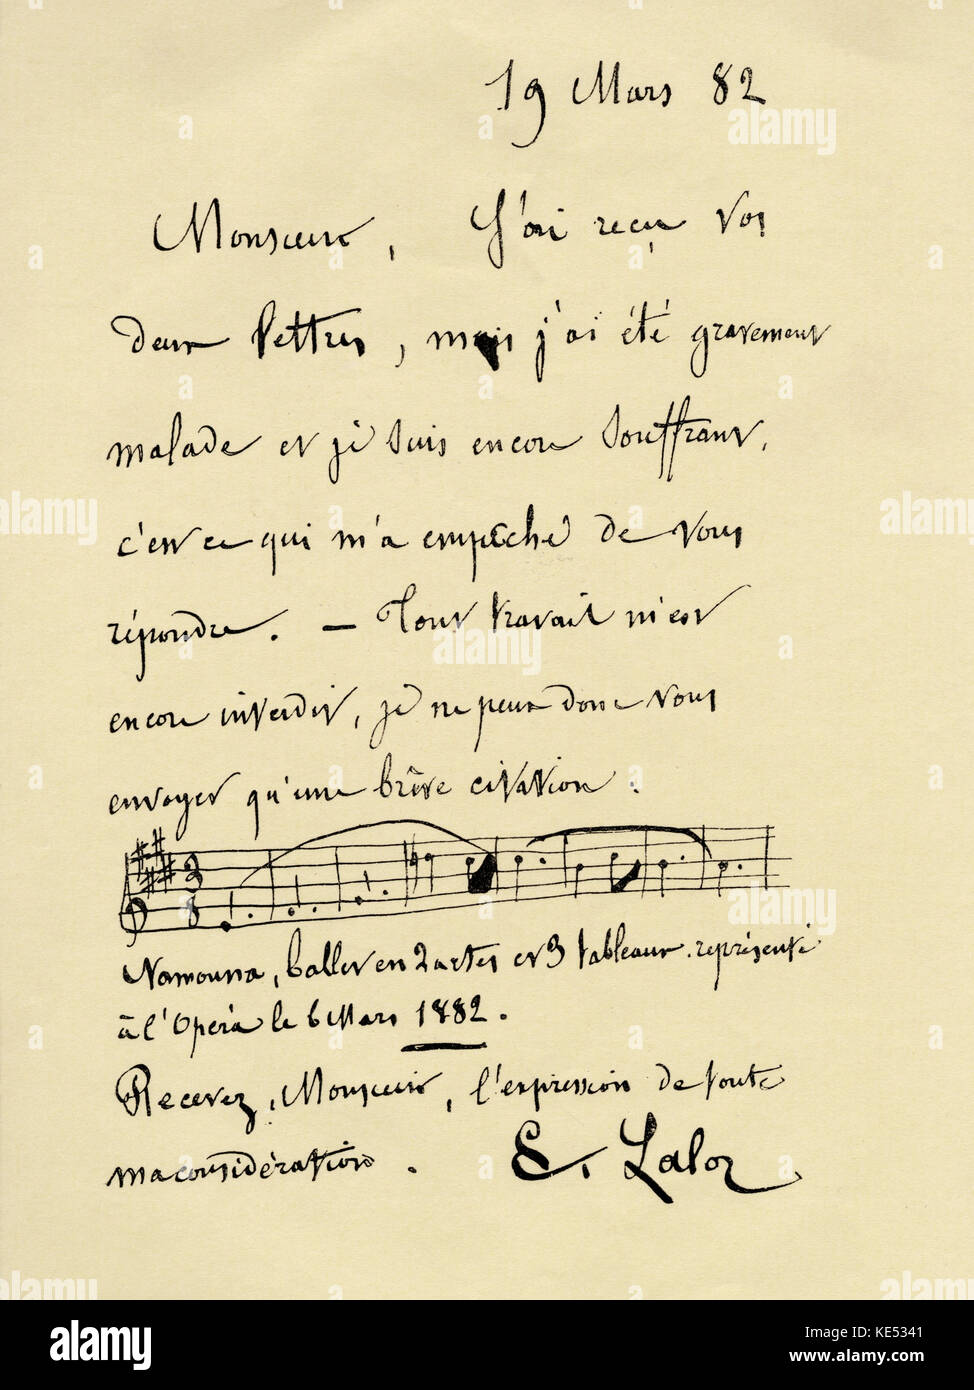 19 Mars 82
Monsieur, J'ai reçu vos
deux lettres, mais j'ai été gravement
malade et je suis encore souffrant,
c'est ce qui m'a empêché de vous
répondre. — Tout travail m'est
encore interdit, je ne peux donc vous
envoyer qu'une brève citation :
3
8
Namouna, ballet en 2 actes et 3 tableaux. représenté
à l'Opéra le 6 Mars 1882.
Recevez, Monsieur, l'expression de toute
ma considération. E. Lalo
alamy
Image ID: KE5341
www.alamy.com